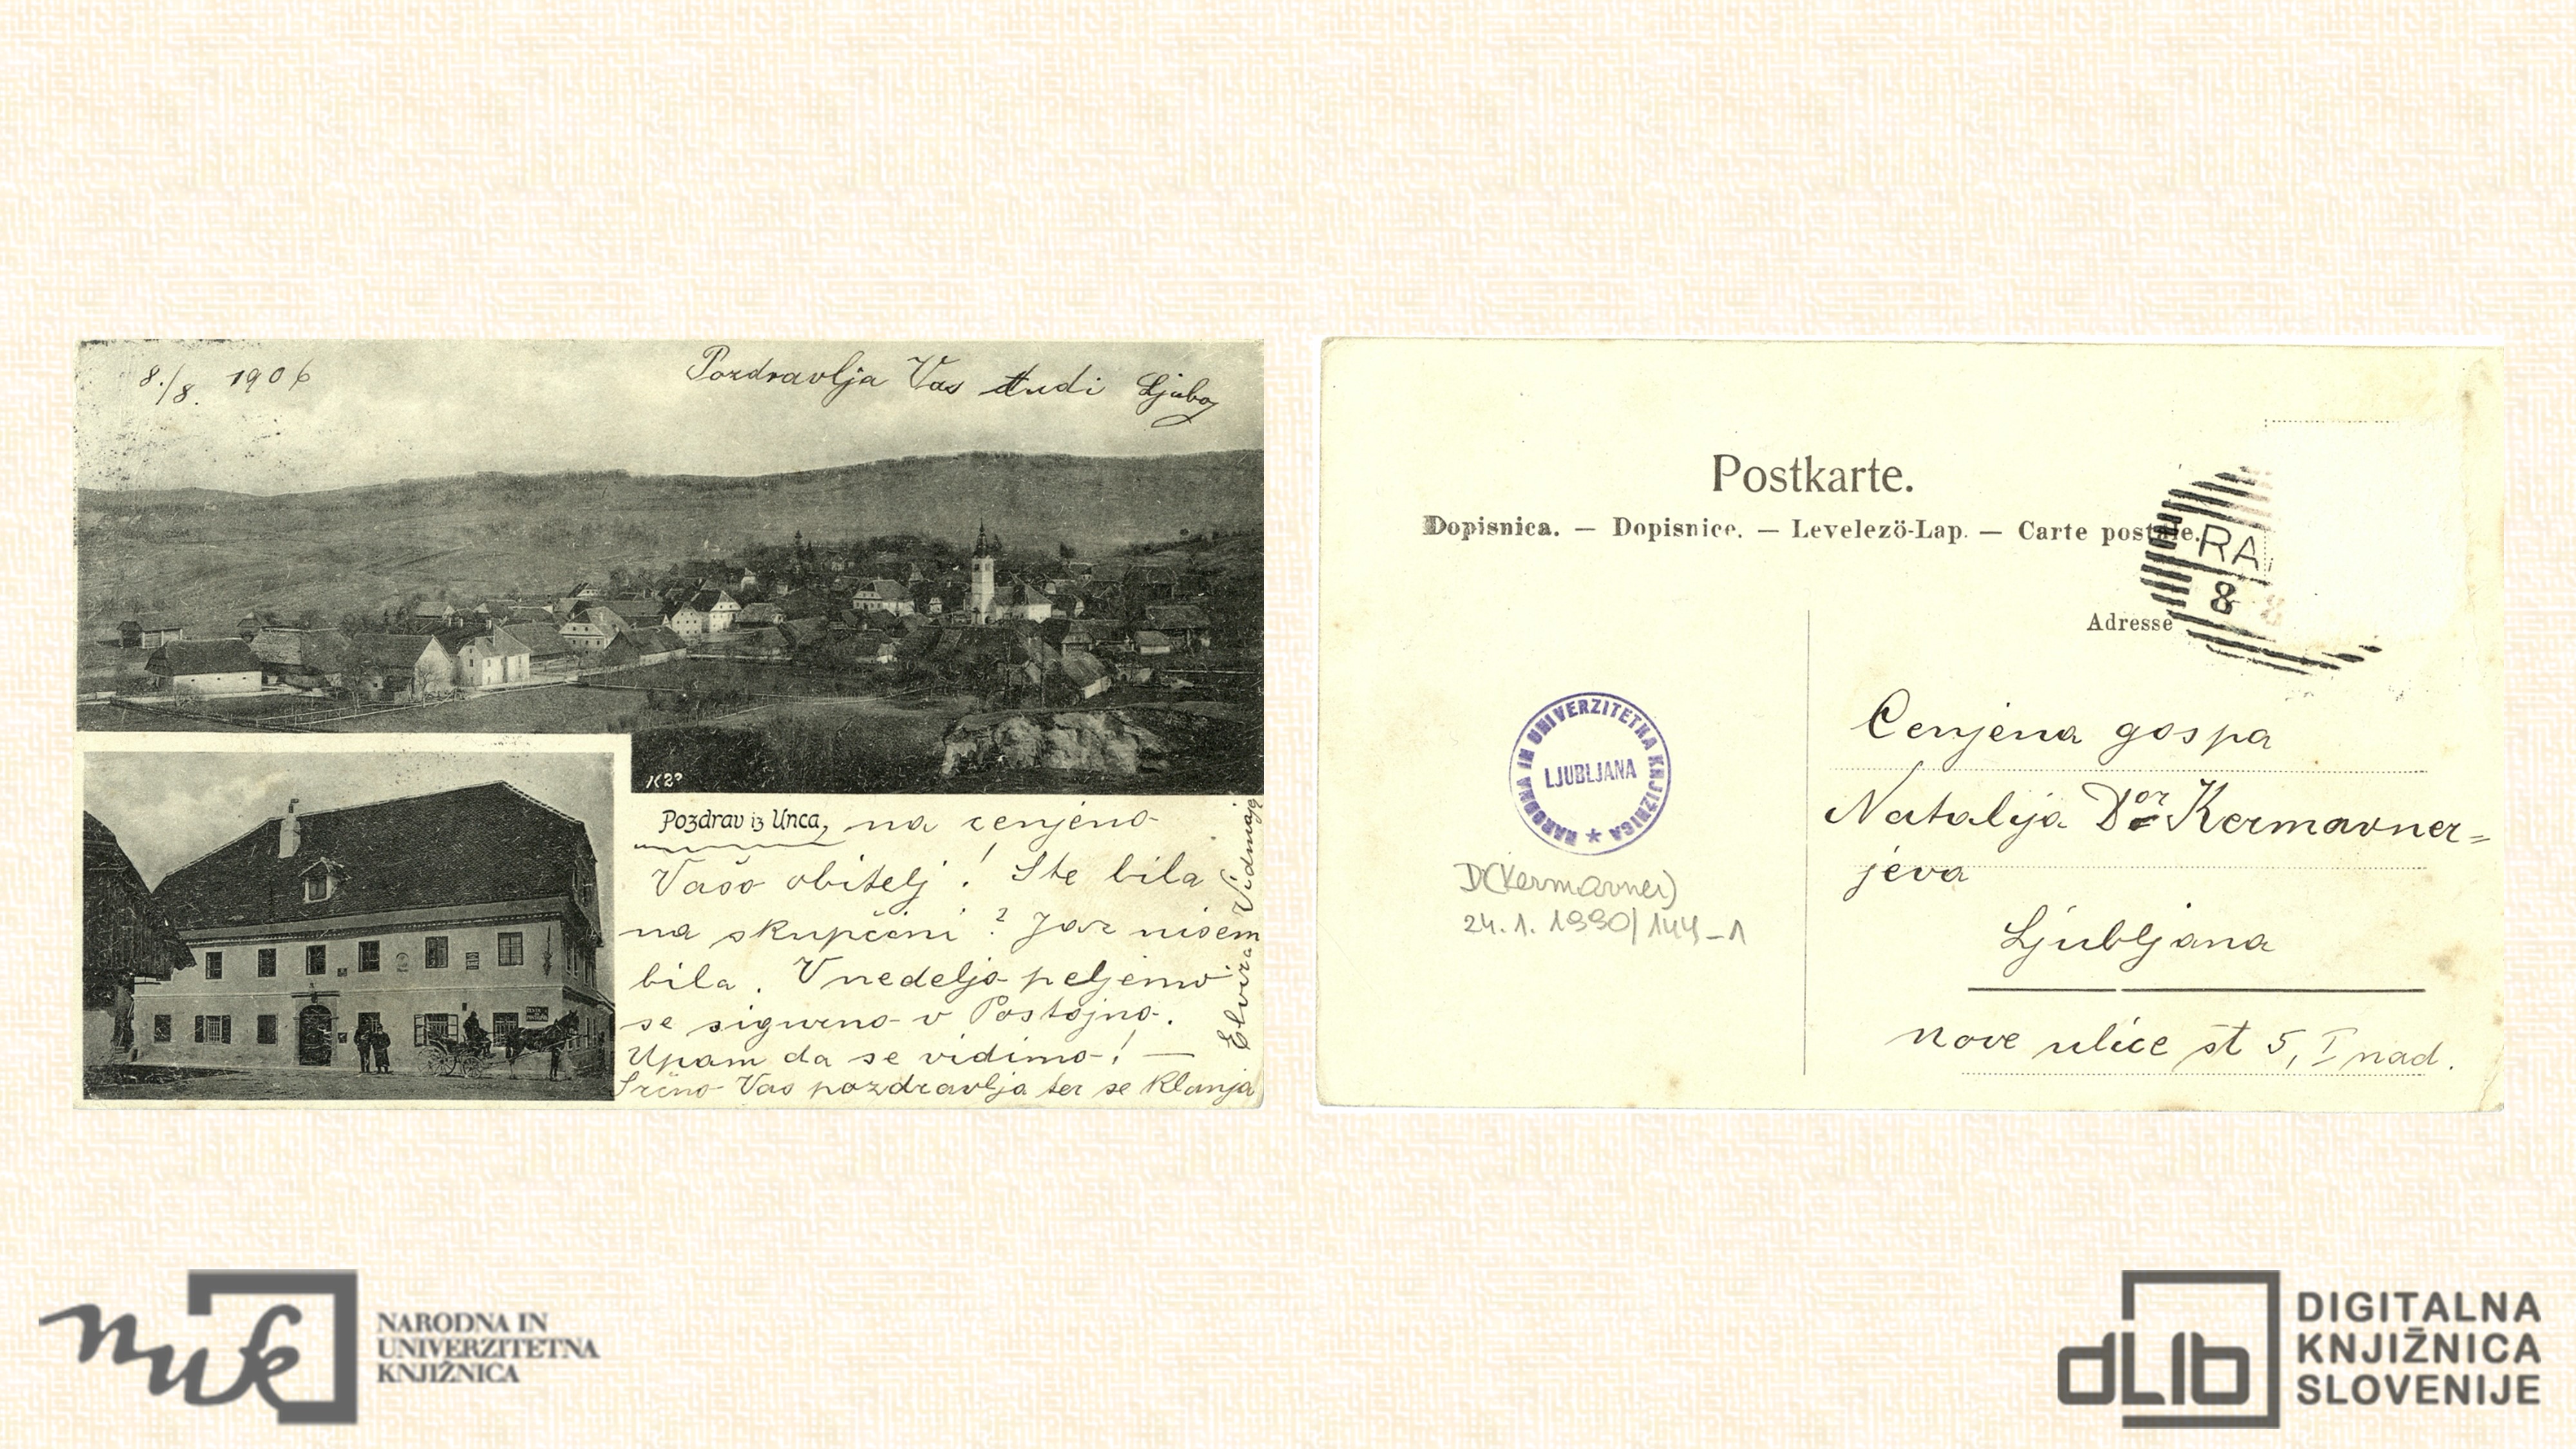 8./8. 1906
Pozdravlja Vas tudi Ljuboj
K2?
Pozdrav iz Unca, na cenjeno
Vašo obitelj! Ste bila
na skupščini? Jaz nisem
bila. V nedeljo peljemo
se sigurno v Postojno.
Upam da se vidimo! —
Srčno Vas pozdravlja ter se klanja
Elvira Vidmajg
Postkarte.
Dopisnica. — Dopisnice. — Levelezö-Lap. — Carte postale.
RA
8 8
Adresse
NARODNA IN UNIVERZITETNA KNJIŽNICA ★
LJUBLJANA
D(Kermavner)
24. 1. 1990/144-1
Cenjena gospa
Natalija Dor Kermavner=
jeva
Ljubljana
nove ulice št 5, I nad.
nuk
NARODNA IN
UNIVERZITETNA
KNJIŽNICA
dLib
DIGITALNA
KNJIŽNICA
SLOVENIJE